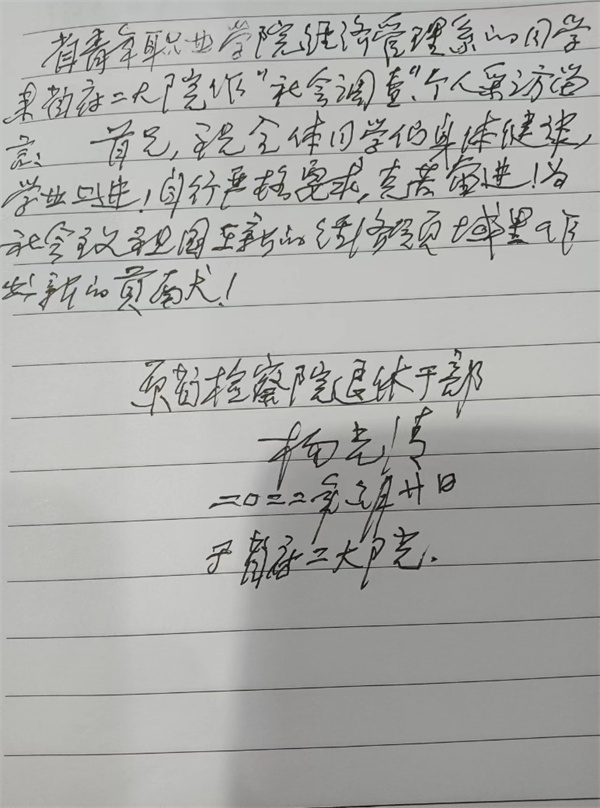 省青年职业学院经济管理系的同学
来省府二大院作“社会调查”，个人采访留
言： 首先，祝全体同学们身体健康，
学业上进！自行严格要求，克苦奋进！为
社会主义祖国至新的经济领域里作
出新的贡献！
原省检察院退休干部
杨光清
二〇二二年 月廿日
于省府二大院.